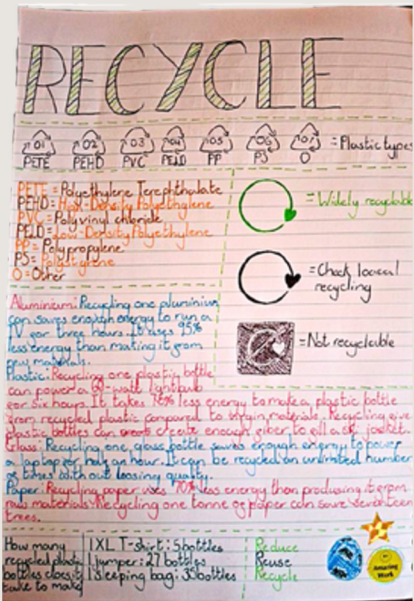 RECYCLE
01 02 03 04 05 06 07 = Plastic types
PETE PEHD PVC PELD PP PS O
PETE = Polyethylene Terephthalate
PEHD = High-Density Polyethylene
PVC = Polyvinyl chloride
PELD = Low-Density Polyethylene
PP = Polypropylene
PS = Polystyrene
O = Other
= Widely recyclable
= Check local
recycling
= Not recyclable
Aluminium: Recycling one aluminium
can saves enough energy to run a
TV for three hours. It uses 95%
less energy than making it from
raw materials.
Plastic: Recycling one plastic bottle
can power a 60-watt lightbulb
for six hours. It takes less energy to make a plastic bottle
from recycled plastic compared to virgin materials. Recycling five
plastic bottles can create enough fiber to fill a ski jacket.
Glass: Recycling one glass bottle saves enough energy to power
a laptop for half an hour. It can be recycled an unlimited number
of times without loosing quality.
Paper: Recycling paper uses 70% less energy than producing it from
raw materials. Recycling one tonne of paper can save seventeen
trees.
How many
recycled plastic
bottles does it
take to make
1 XL T-shirt: 5 bottles
1 jumper: 27 bottles
1 sleeping bag: 35 bottles
Reduce
Reuse
Recycle
Amazing
Work